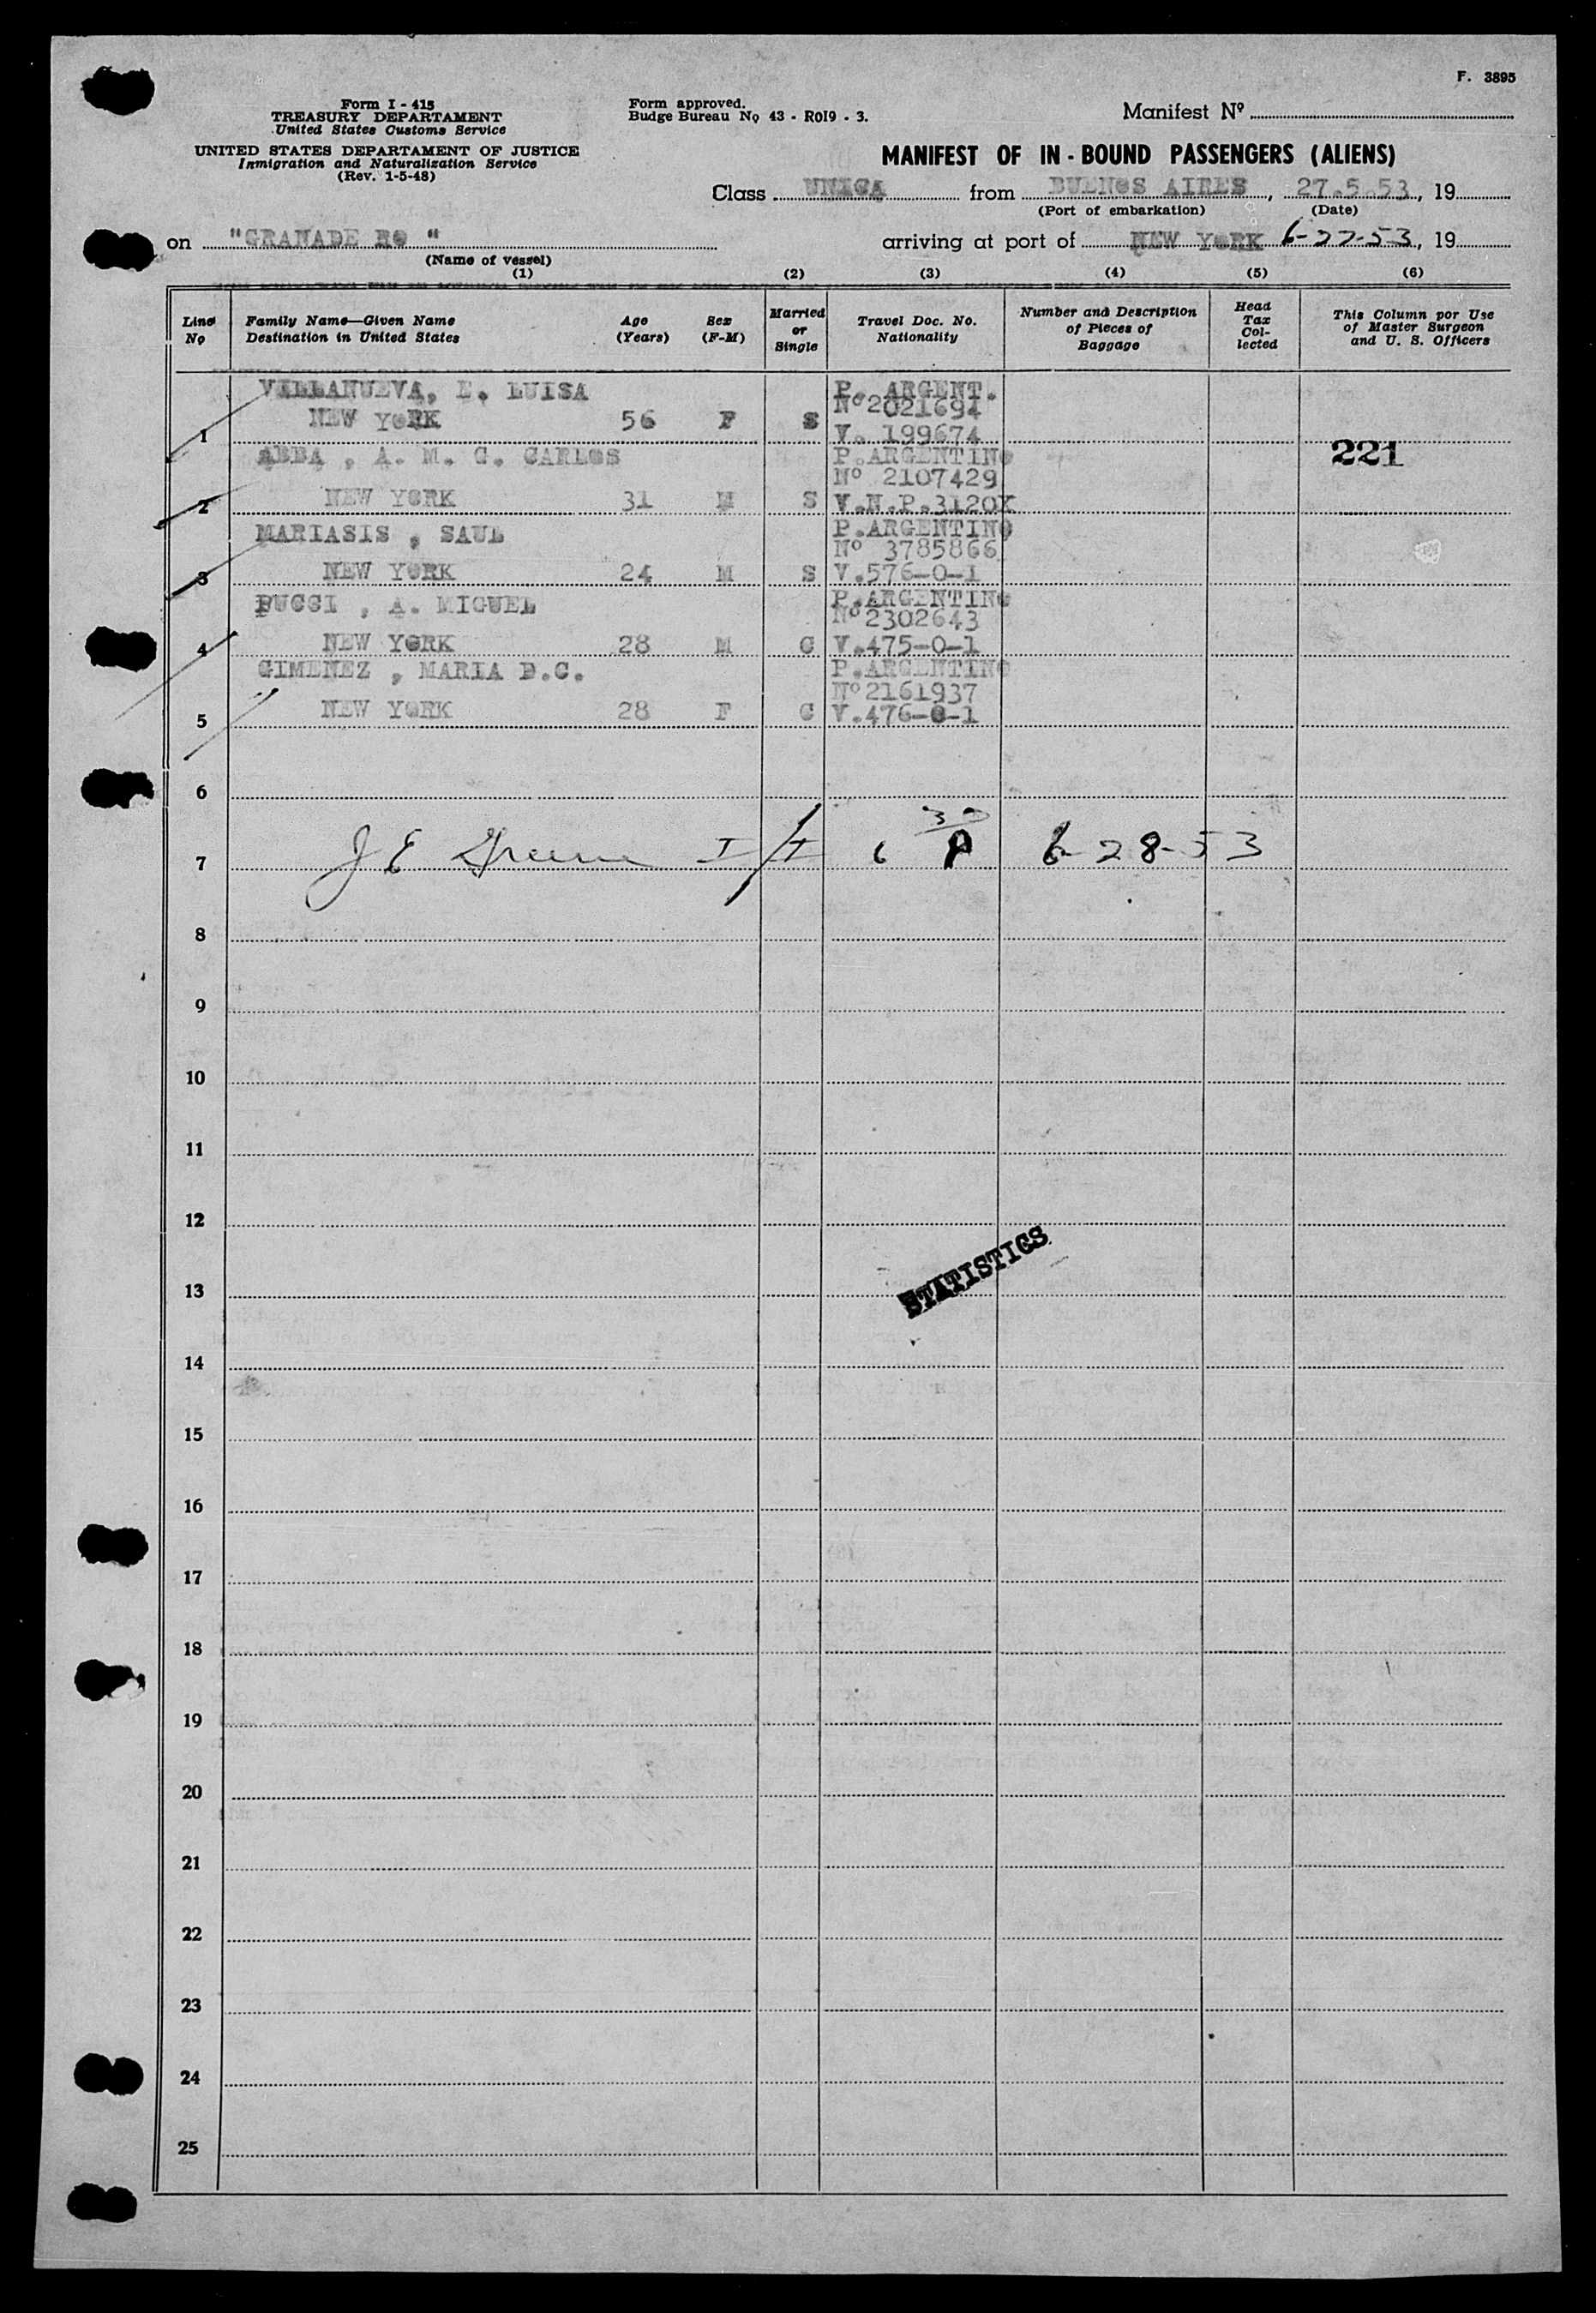 F. 3895
Form I - 415
TREASURY DEPARTAMENT
United States Customs Service
UNITED STATES DEPARTAMENT OF JUSTICE
Inmigration and Naturalization Service
(Rev. 1-5-48)
Form approved.
Budge Bureau Nọ 43 - R0I9 - 3.
Manifest Nº
MANIFEST OF IN - BOUND PASSENGERS (ALIENS)
Class UNICA from BUENOS AIRES, 27.5.53, 19
(Port of embarkation) (Date)
on "GRANADE RO " arriving at port of NEW YORK 6-27-53, 19
(Name of vessel)
(1) (2) (3) (4) (5) (6)
Line Nọ
Family Name—Given Name
Destination in United States
Age (Years)
Sex (F-M)
Married or Single
Travel Doc. No. Nationality
Number and Description of Pieces of Baggage
Head Tax Col-lected
This Column por Use of Master Surgeon and U. S. Officers
VILLANUEVA, E. LUISA P. ARGENT.
Nº2021694
1 NEW YORK 56 F S V. 199674
221
ABBA , A. M. C. CARLOS P.ARGENTINO
Nº 2107429
2 NEW YORK 31 M S V.N.P.3120X
MARIASIS , SAUL P.ARGENTINO
Nº 3785866
3 NEW YORK 24 M S V.576-0-1
PUCCI , A. MIGUEL P.ARGENTINO
Nº2302643
4 NEW YORK 28 M C V.475-0-1
GIMENEZ , MARIA D.C. P.ARGENTINO
Nº2161937
5 NEW YORK 28 F C V.476-0-1
6
7 J E Greene I/I 6 30 P 6-28-53
8
9
10
11
12
STATISTICS
13
14
15
16
17
18
19
20
21
22
23
24
25